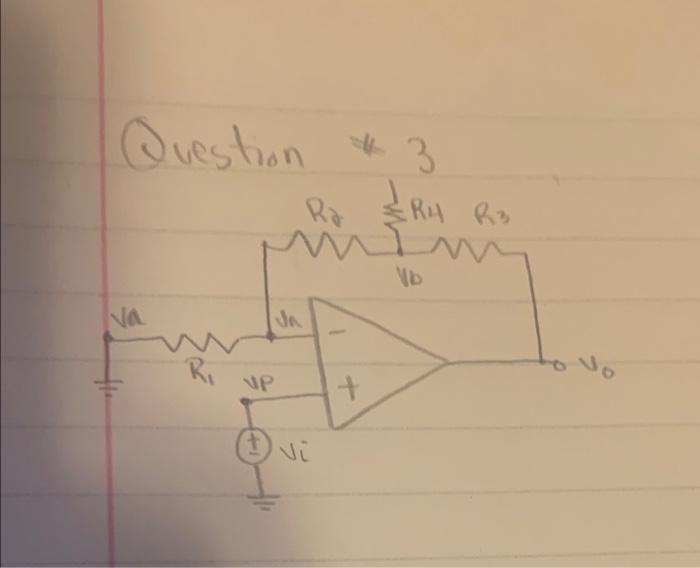 Question # 3
R2 R4 R3
Vb
Va Vn
R1
VP
−
+
Vo
Vi
+
−